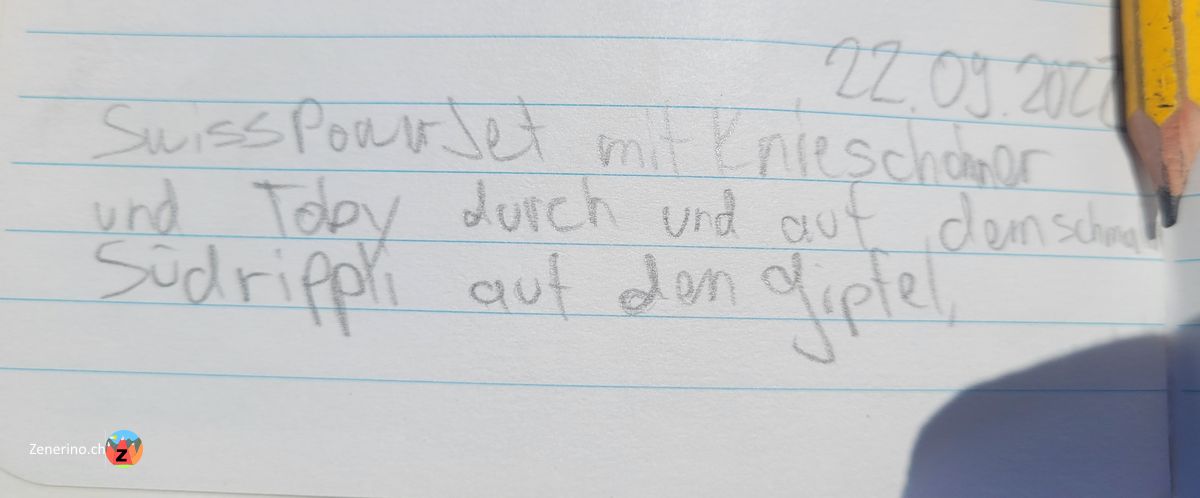 22.09.202
SwissPowerJet mit Knieschoner
und Toby durch und auf dem schma
Südrippli auf den Gipfel,
Zenerino.ch
Z